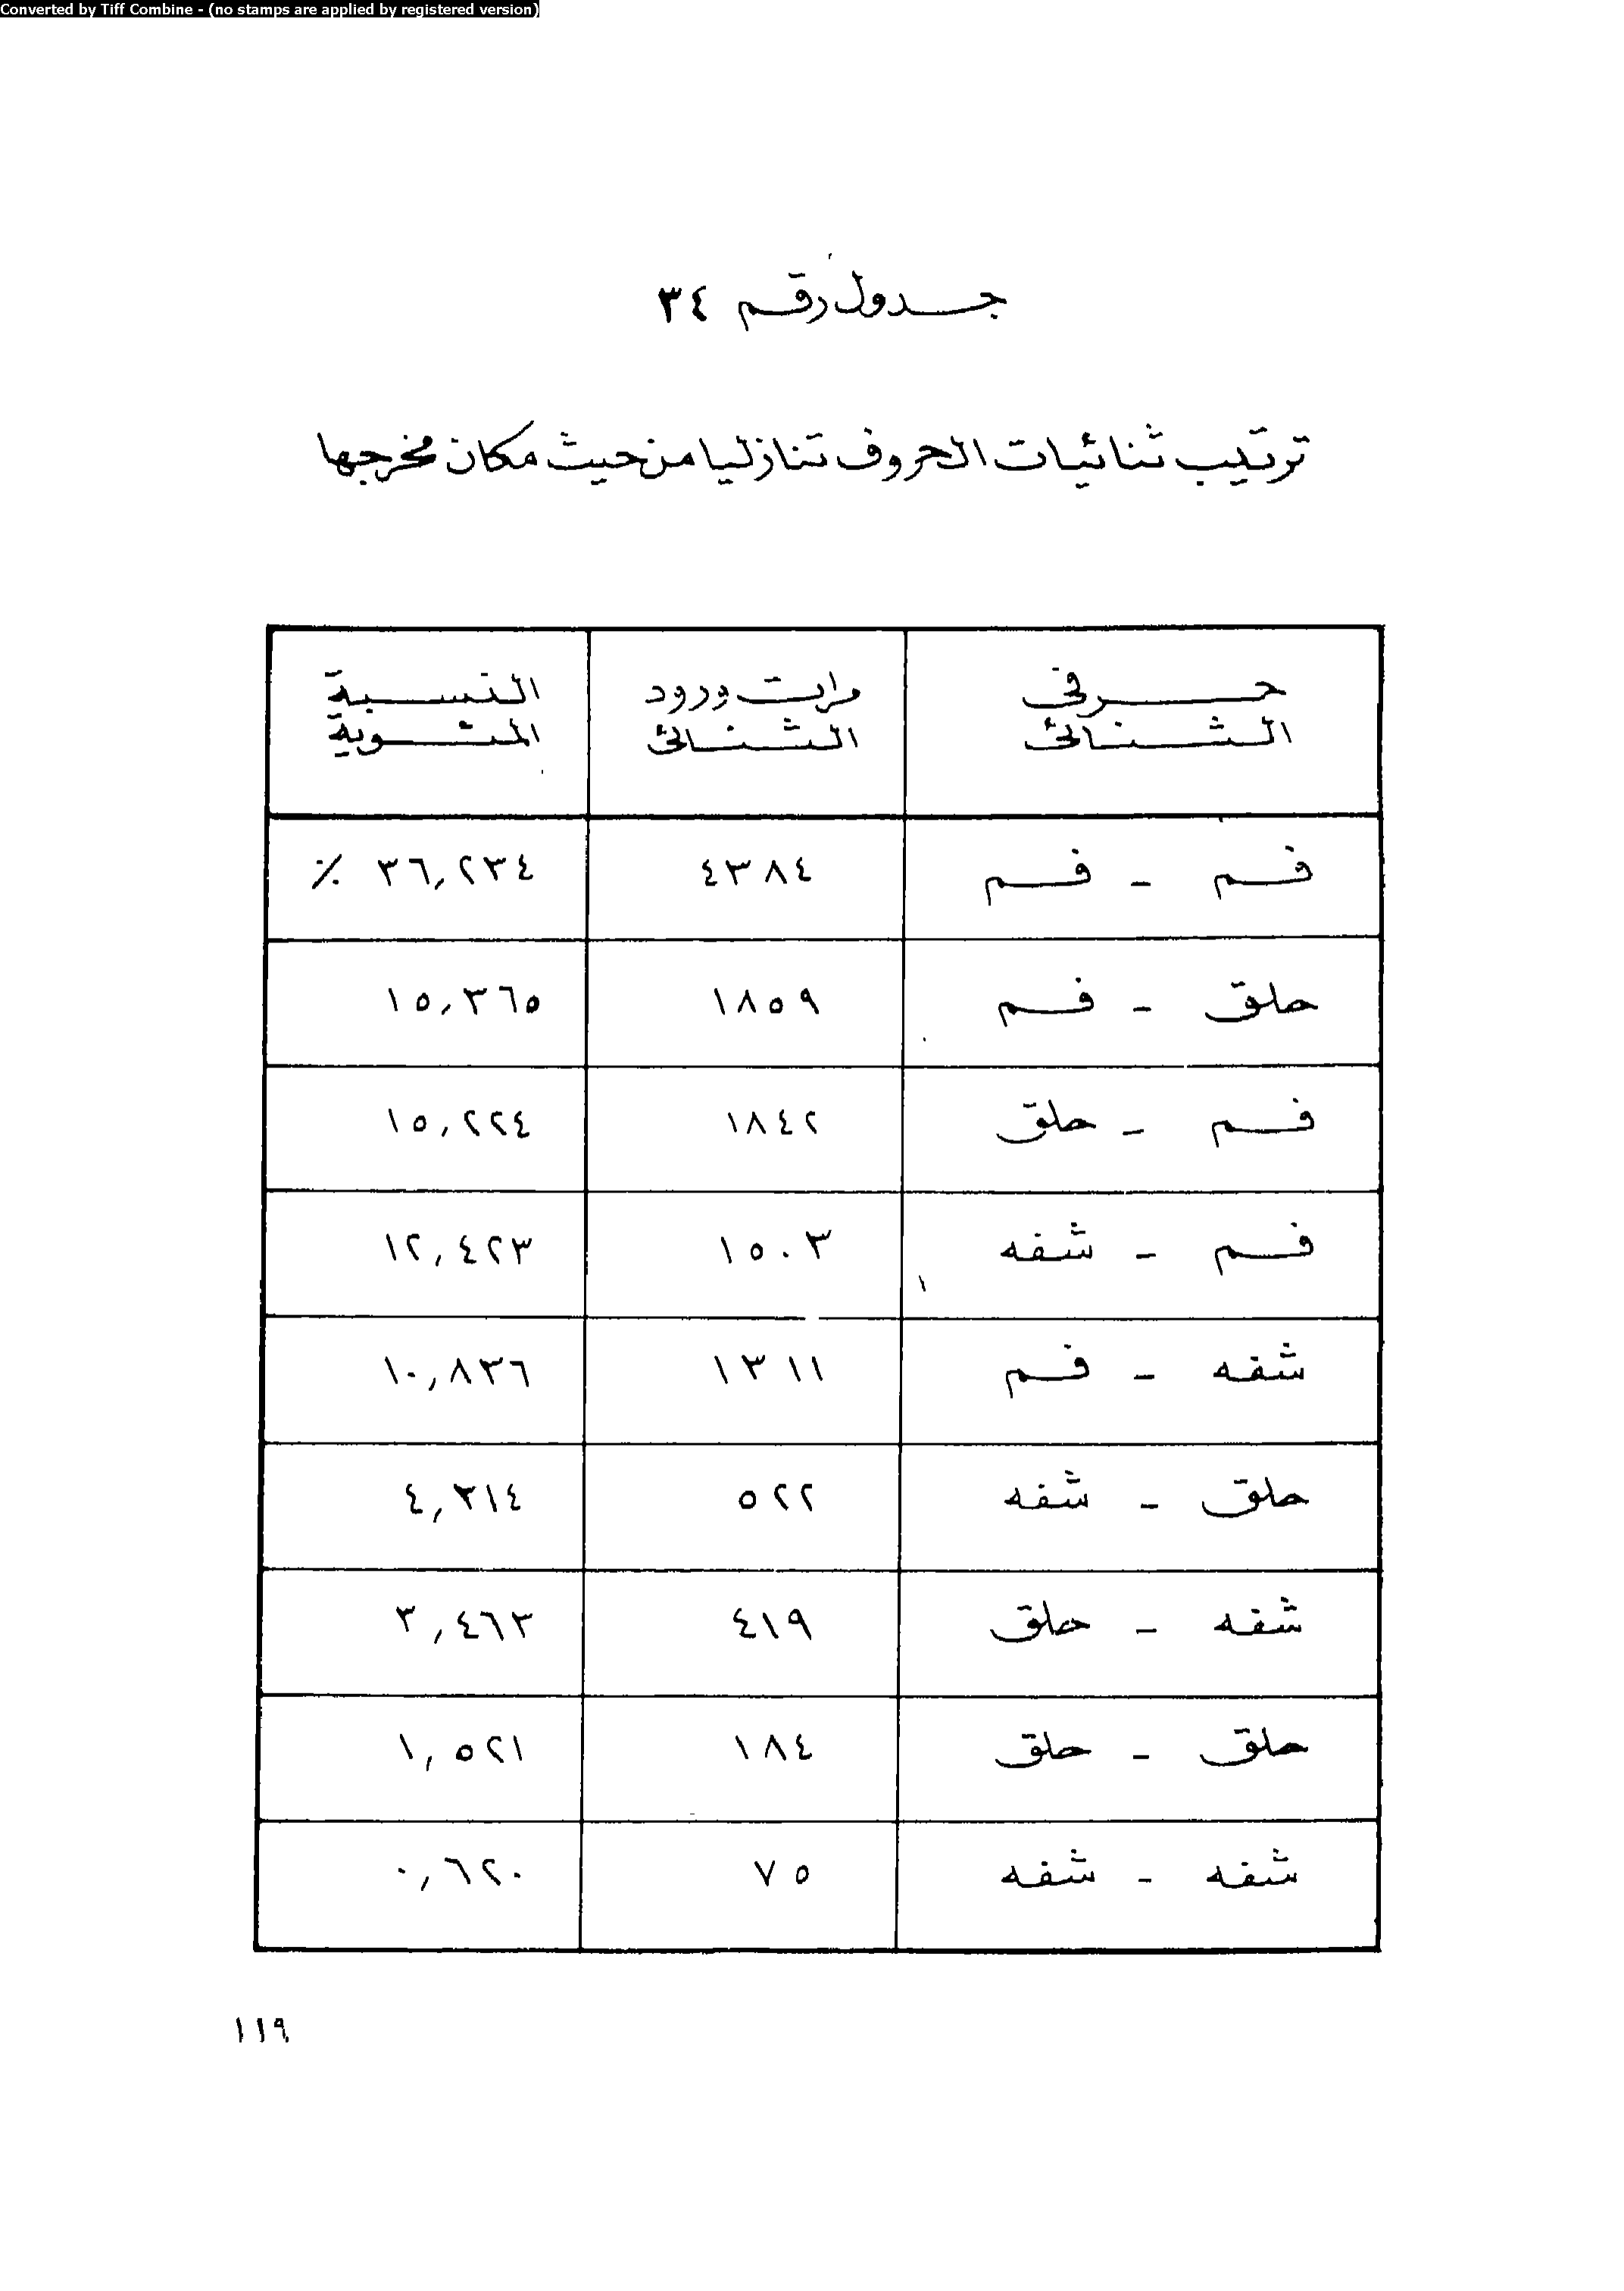 Converted by Tiff Combine - (no stamps are applied by registered version)
جدول رقم ٣٤
ترتيب ثنائيات الحروف تنازليا من حيث مكان مخرجها
حرفي الثنائى | مرات ورود الثنائى | النسبة المئوية
فم - فم | ٤٣٨٤ | ٣٦,٢٣٤ ٪
حلق - فم | ١٨٥٩ | ١٥,٣٦٥
فم - حلق | ١٨٤٢ | ١٥,٢٢٤
فم - شفه | ١٥٠٣ | ١٢,٤٢٣
شفه - فم | ١٣١١ | ١٠,٨٣٦
حلق - شفه | ٥٢٢ | ٤,٣١٤
شفه - حلق | ٤١٩ | ٣,٤٦٣
حلق - حلق | ١٨٤ | ١,٥٢١
شفه - شفه | ٧٥ | ٠,٦٢٠
١١٩